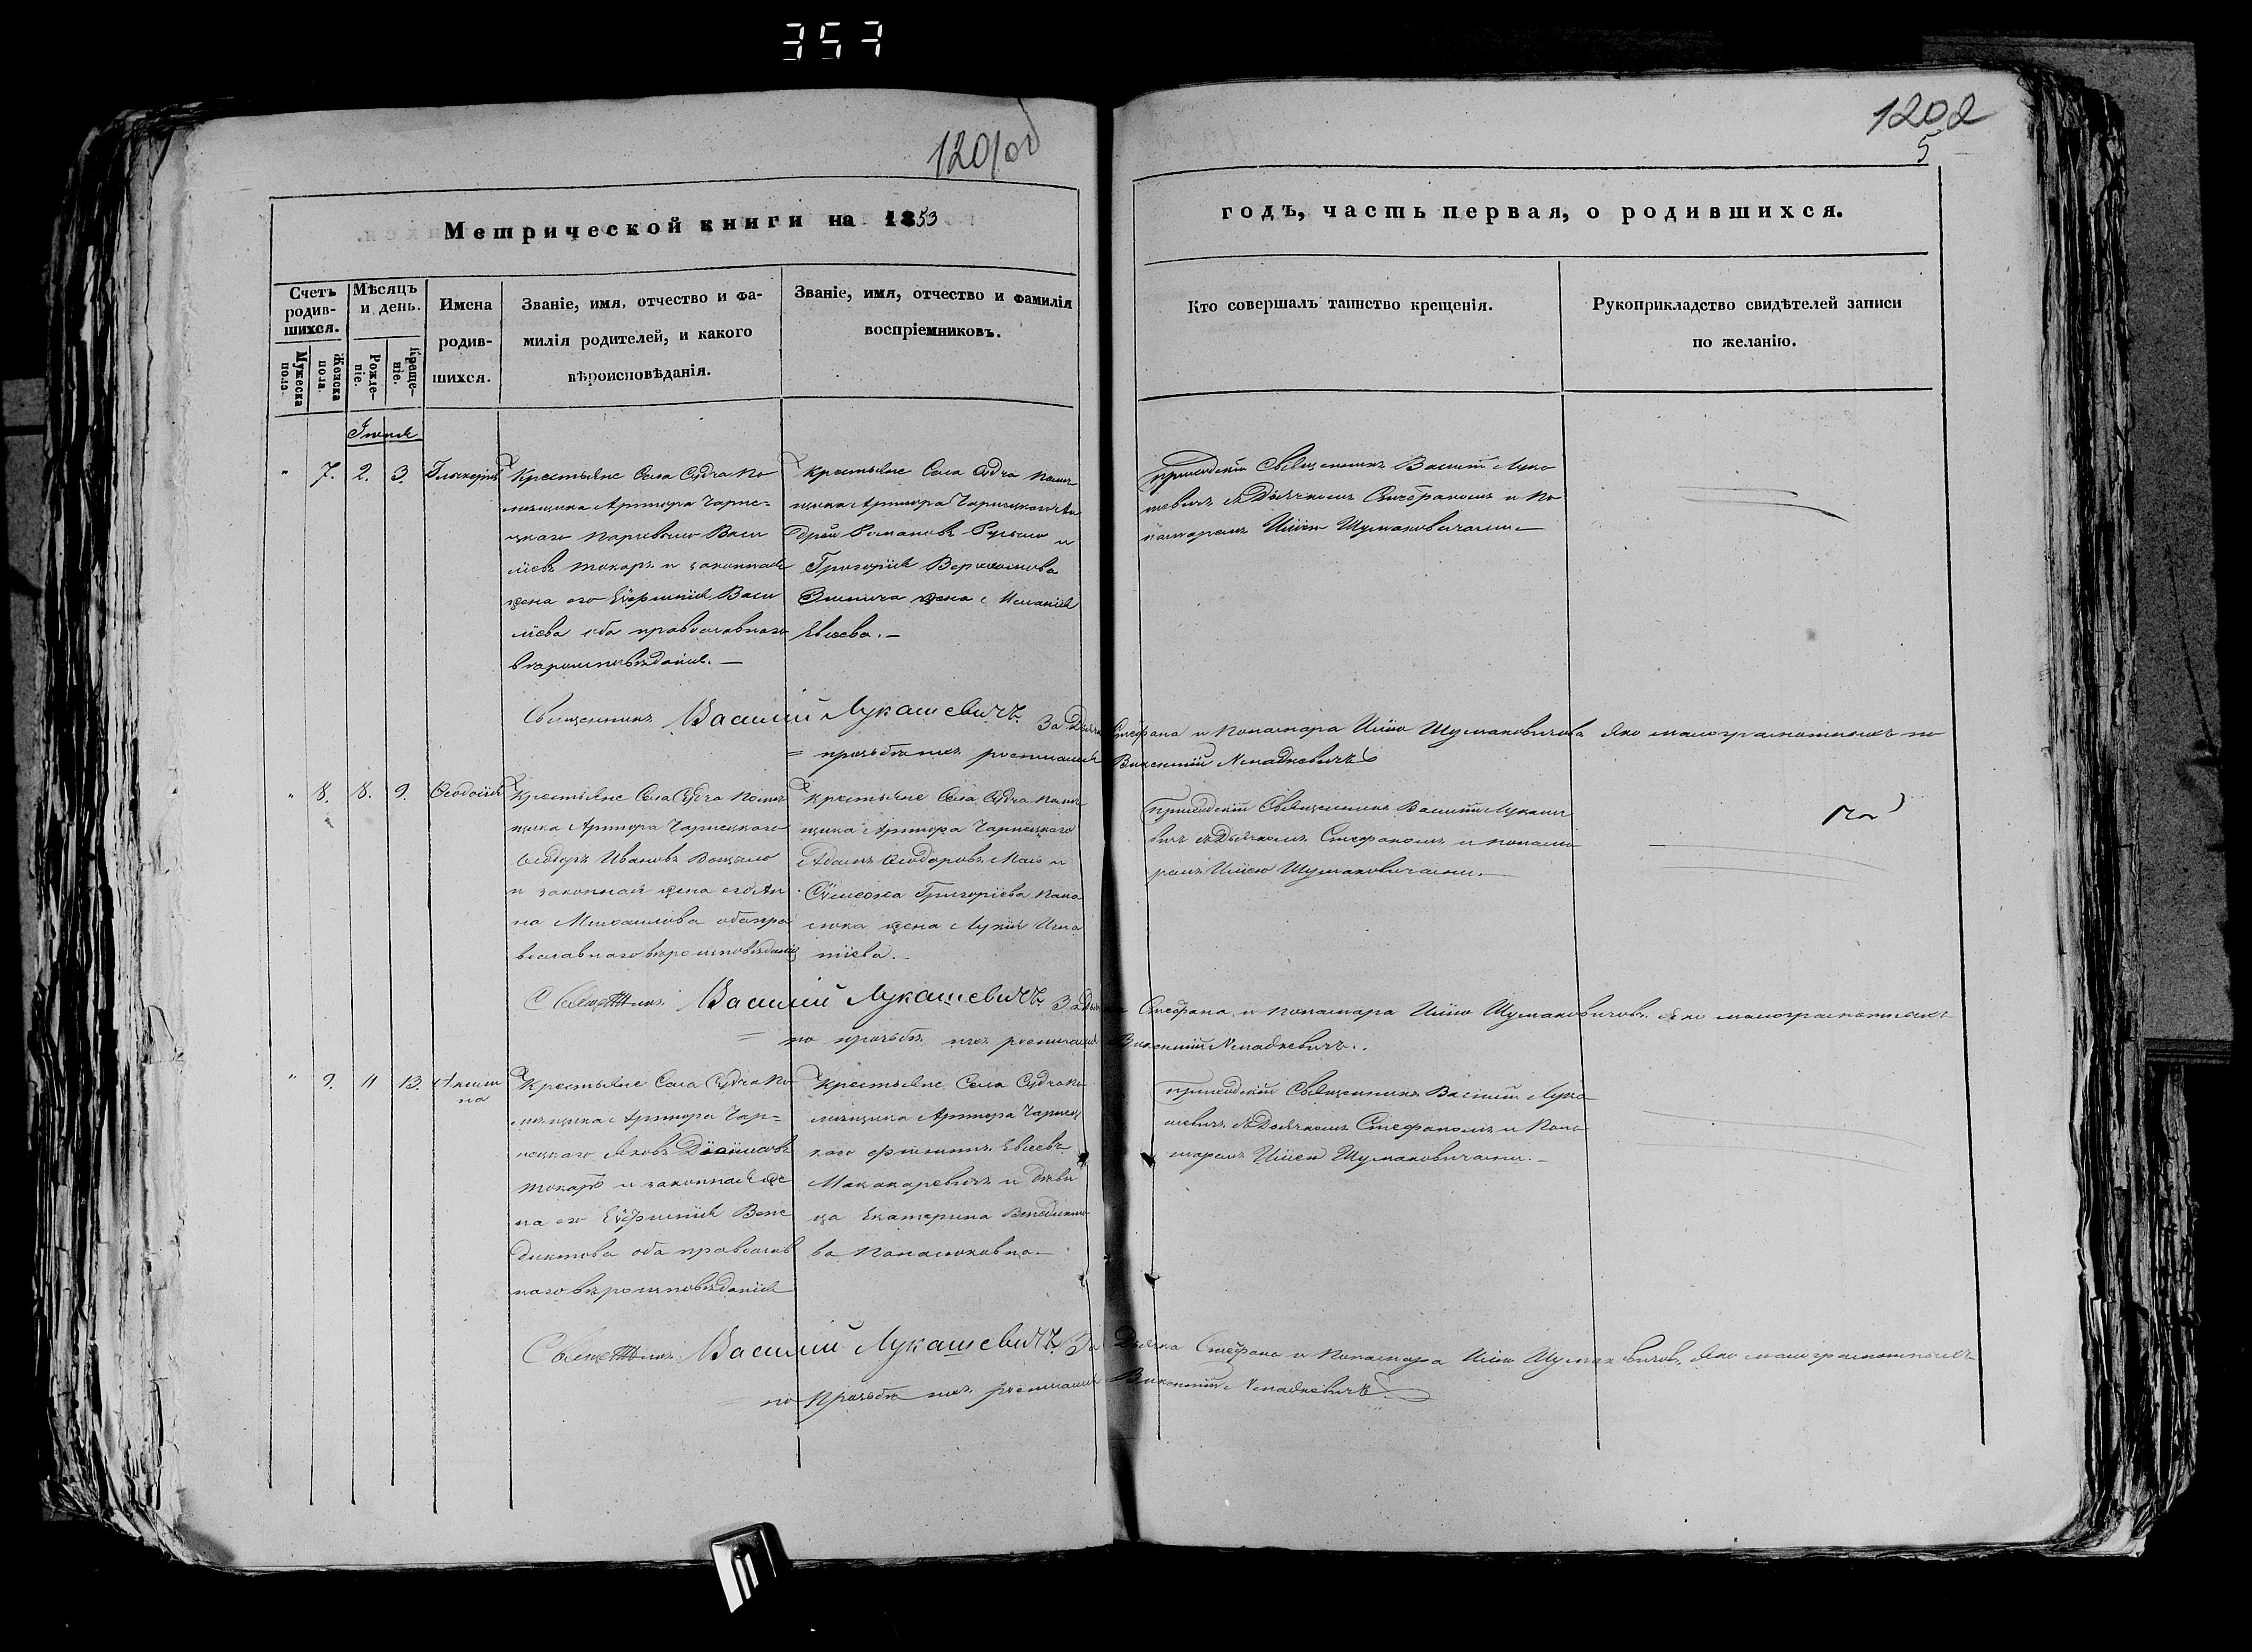 357
1201об
1202
5
Метрической книги на 1853
годъ, часть первая, о родившихся.
Счетъ родив-
шихся.
Мужеска пола.
Женска пола.
Мѣсяцъ и день.
Рожде-
ніе.
Креще-
ніе.
Имена
родив-
шихся.
Званіе, имя, отчество и фа-
милія родителей, и какого
вѣроисповѣданія.
Званіе, имя, отчество и фамилія
воспріемниковъ.
Кто совершалъ таинство крещенія.
Рукоприкладство свидѣтелей записи
по желанію.
7. 2. 3. Гликерія
Крестьяне Села Судча по
мѣщика Артюра Чарне-
цкаго
Васи
ліевъ токарь и законная
жена его Евфимія Васи
ліева оба православнаго
вѣроисповѣданія. —
Крестьяне Села Судча помѣ
щика Артюра Чарнецкаго Ан
дрей Романовъ и
Григорія
жена
Евсева. —
Приходскій Священникъ Василій Лука
шевичъ съ Дьячкомъ Стефаномъ и по
намаремъ Иліею Шумаковичами —
Священникъ Василій Лукашевичъ. За Дьячка Стефана и понамара Илію Шумаковичовъ яко малограмотныхъ по
прозьбѣ ихъ росписался Викентій
8. 8. 9. Феодосія
Крестьяне Села Судча помѣ
щика Артюра Чарнецкаго
Феодоръ Ивановъ
и законная жена его Ан
на Михаилова оба пра
вославнаго вѣроисповѣданія
Крестьяне Села Судча помѣ
щика Артюра Чарнецкаго
Адамъ Феодоровъ и
Симеона Григоріева Пана
сюка жена Лукія Игна
тіева. —
Приходскій Священникъ Василій Лукаше
вичъ съ Дьячкомъ Стефаномъ и понама
ремъ Иліею Шумаковичами. —
Священникъ Василій Лукашевичъ. За Дьячка Стефана и понамара Илію Шумаковичовъ яко малограмотныхъ
по прозьбѣ ихъ росписался Викентій
9. 11 13. Акили
на
Крестьяне Села Судча по
мѣщика Артюра Чар-
нецкаго Яковъ Діонисіовъ
токарь и законная же
на его Евфимія Вене
диктова оба православ
наго вѣроисповѣданія
Крестьяне Села Судча по
мѣщика Артюра Чарнец
каго Филиппъ Евсеевъ
и дѣви
ца Екатерина Венедикто
ва Панасюковна —
Приходскій Священникъ Василій Лука
шевичъ съ Дьячкомъ Стефаномъ и Пона
маремъ Иліею Шумаковичами. —
Священникъ Василій Лукашевичъ. За Дьячка Стефана и Понамара Илію Шумаковичовъ яко малограмотныхъ
по прозьбѣ ихъ росписался Викентій